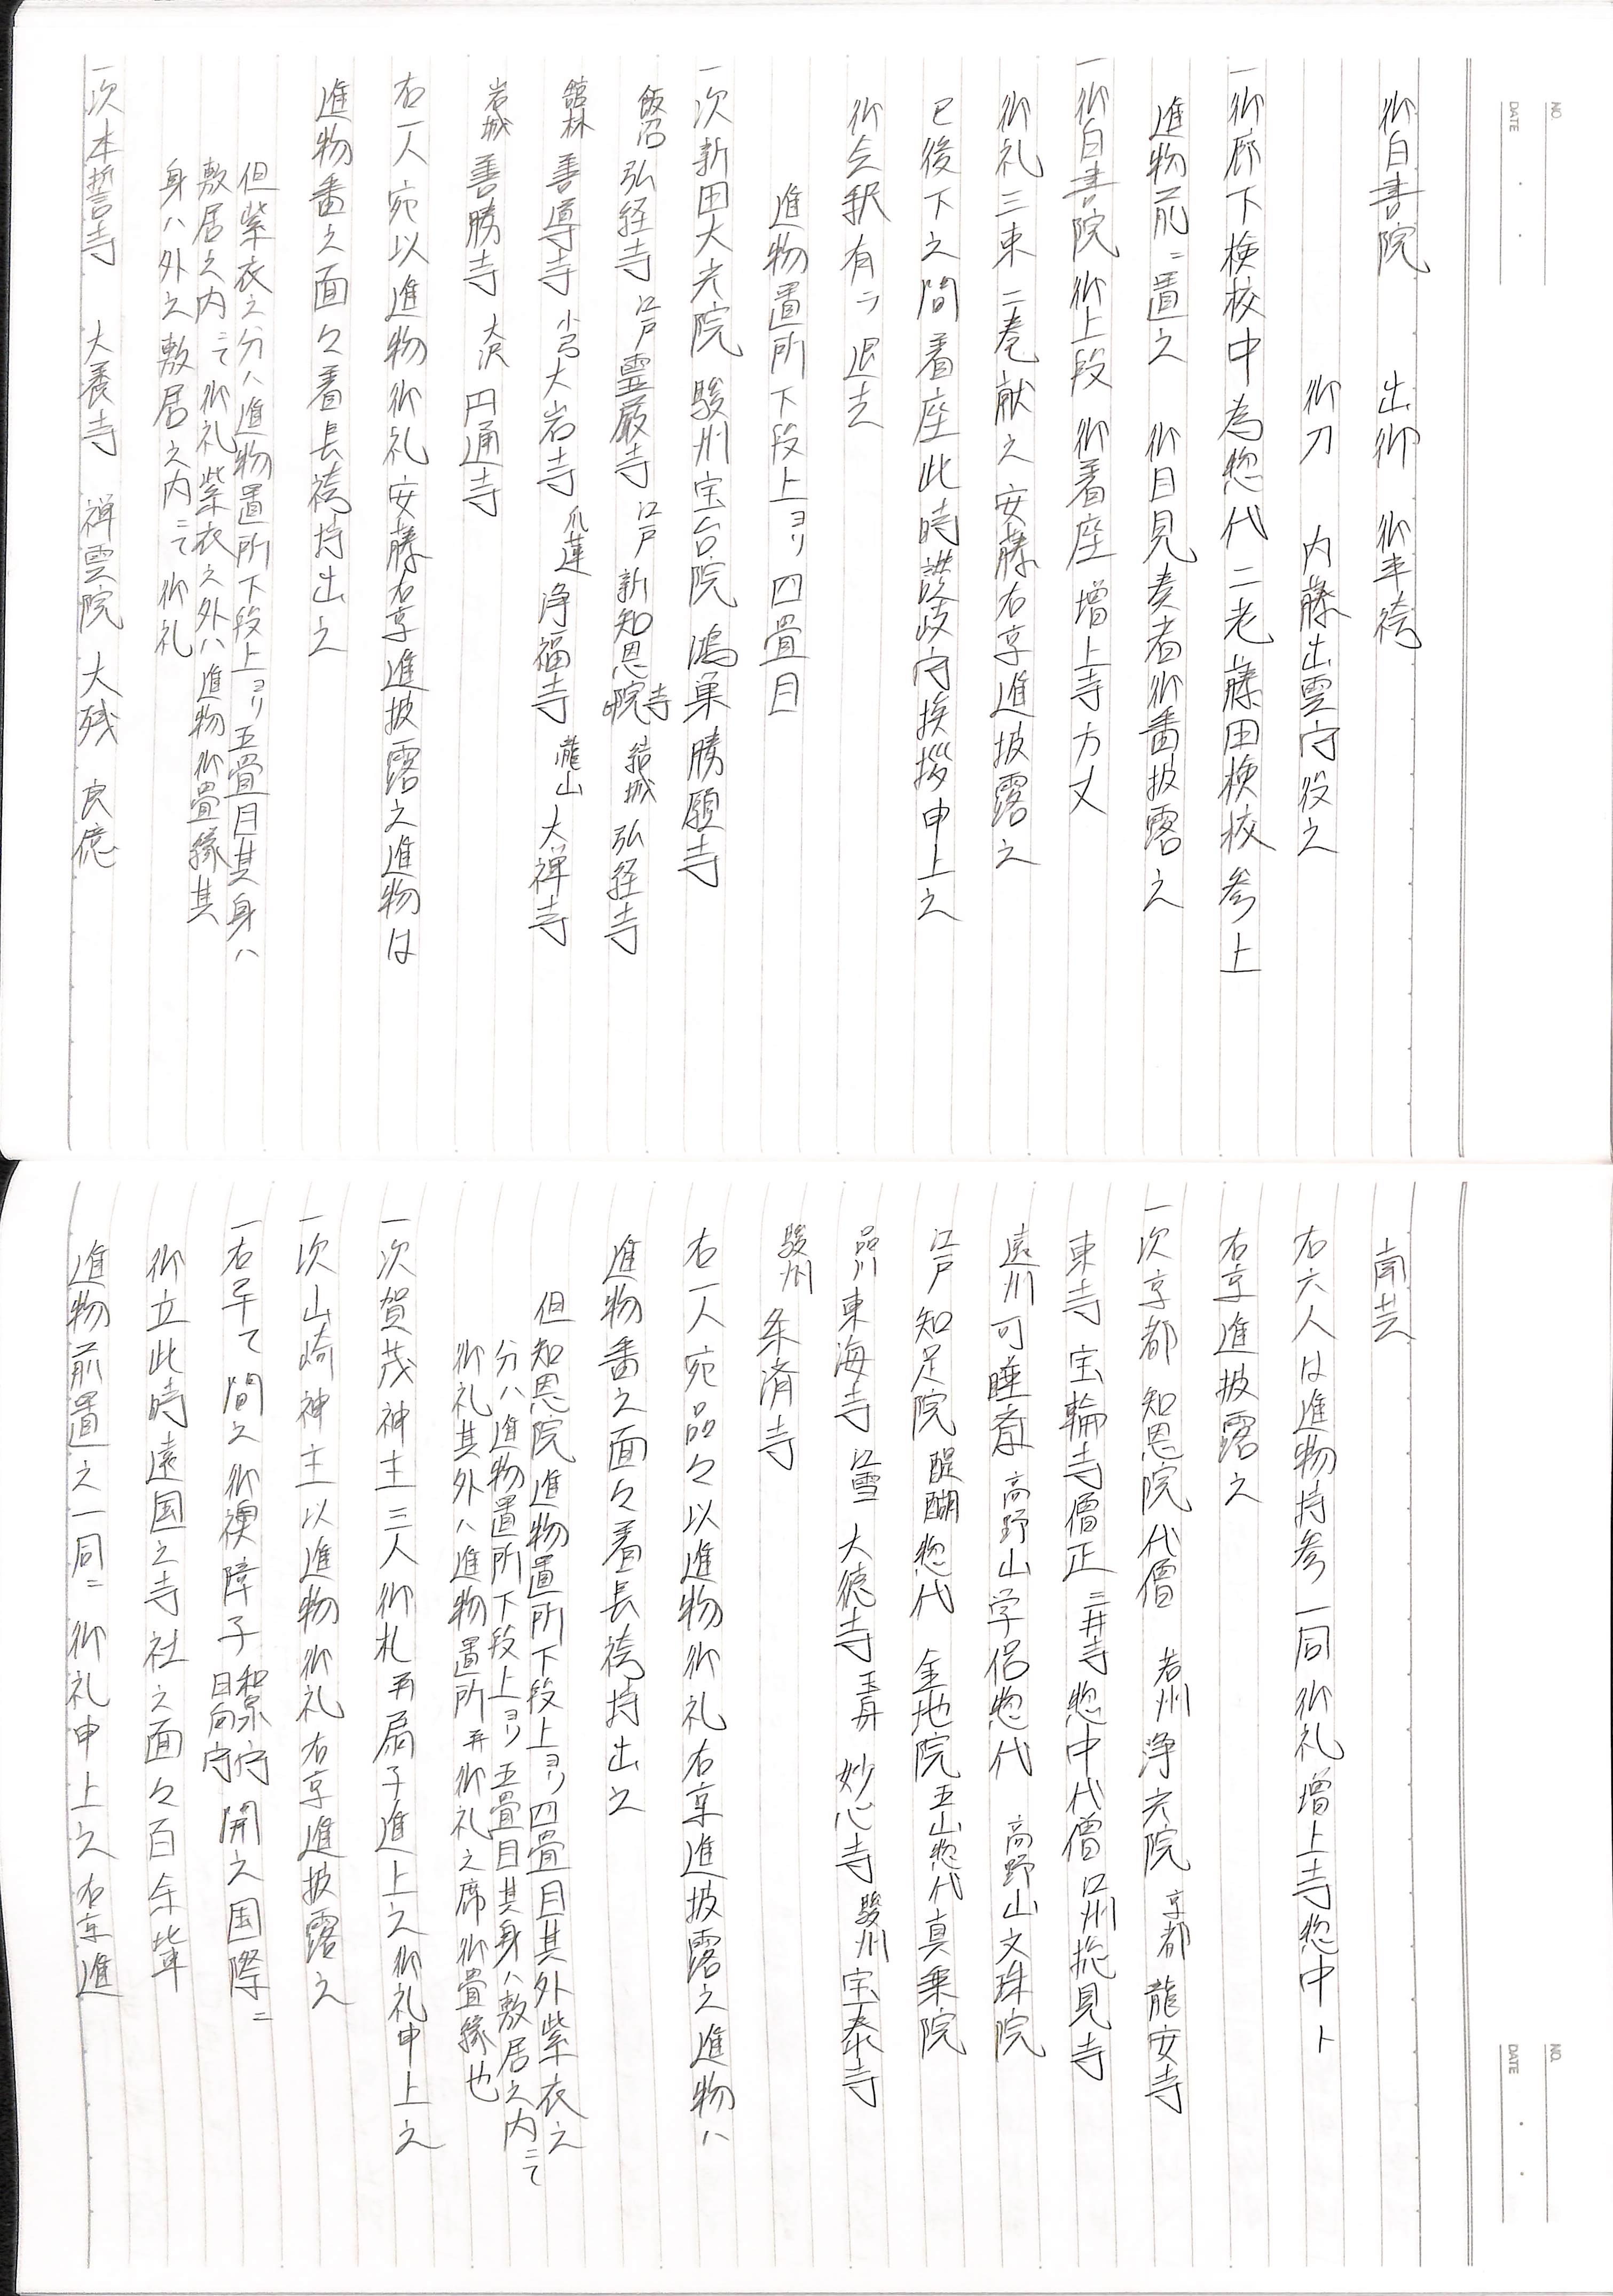 NO.
DATE
御白書院　出御　御半袴
御刀　内藤出雲守役之
一御廊下検校中為惣代二老藤田検校参上
進物前ニ置之　御目見奏者御番披露之
一御白書院御上段御着座増上寺方丈
御礼三束二巻献之安藤右京進披露之
已後下之間着座此時讃岐守挨拶申上之
御会釈有テ退去
進物置所下段上ヨリ四畳目
一次新田大光院　駿州宝台院　鴻巣勝願寺
飯沼弘経寺　江戸霊厳寺　江戸新知恩院寺　結城弘経寺
館林善導寺　大岩寺　瓜連浄福寺　瀧山大禅寺
岩城善勝寺　大沢円通寺
右一人宛以進物御礼安藤右京進披露之進物は
進物番之面々着長袴持出之
但紫衣之分ハ進物置所下段上ヨリ五畳目其身ハ
敷居之内ニて御礼紫衣之外ハ進物御畳縁其
身ハ外之敷居之内ニて御礼
一次本誓寺　大養寺　禅雲院　大残　良億
NO.
DATE
南芸
右六人は進物持参一同御礼増上寺惣中ト
右京進披露之
一次京都知恩院代僧　若州浄光院　京都龍安寺
東寺宝輪寺僧正　三井寺惣中代僧　江州捴見寺
遠州可睡斎　高野山学侶惣代　高野山文珠院
江戸知足院　醍醐惣代　金地院　五山惣代真乗院
品川東海寺　江雪大徳寺　妙心寺　駿州宝泰寺
駿州　済寺
右一人宛品々以進物御礼右京進披露之進物ハ
進物番之面々着長袴持出之
但知恩院進物置所下段上ヨリ四畳目其外紫衣之
分ハ進物置所下段上ヨリ五畳目其身ハ敷居之内ニて
御礼其外ハ進物置所并御礼之席御畳縁也
一次賀茂神主三人御札并扇子進上之御礼申上之
一次山崎神主以進物御礼右京進披露之
一右卒て間之御襖障子和泉守日向守開之国際ニ
御立此時遠国之寺社之面々百余輩
進物前置之一同ニ御礼申上之右京進